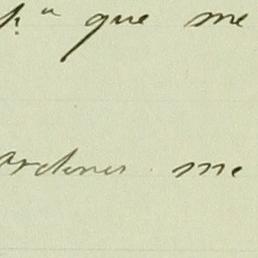 p.ª que me
ordenes me